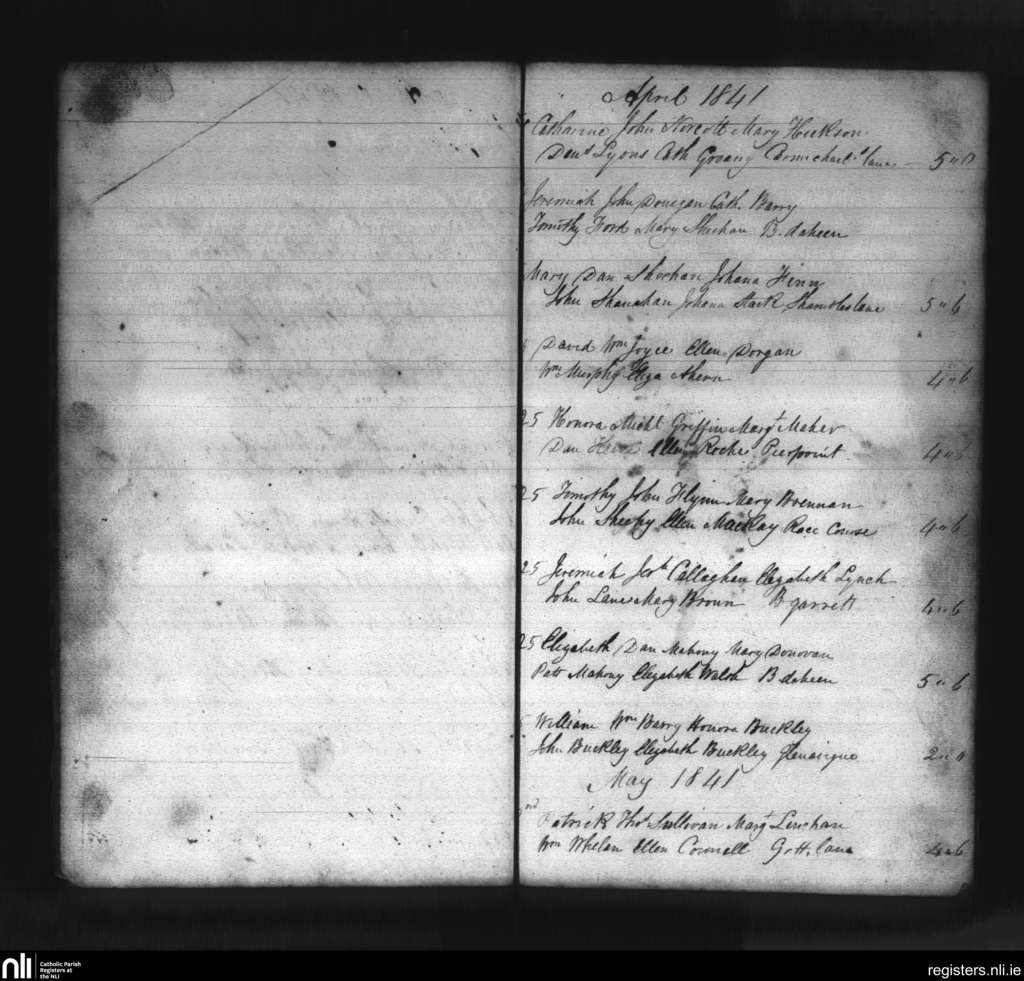 April 1841
Catharine John Norcott Mary Hickson
Denˢ Lyons Cath Carmichael's lane 5 " 0
Jeremiah John Donegan Cath. Barry
Timothy Ford Mary Sheehan B. daheen
Mary Dan Sheehan Johana Finn
John Shanahan Johana Stack Shambles lane 5 " 6
David Wm Joyce Ellen Dorgan
Wm Murphy Eliza Ahern 4 " 6
25 Honora Michl Griffin Margt Maher
Dan Ellen Roche Pierpoint 4 " 6
25 Timothy John Flynn Mary Brennan
John Sheehy Ellen Mackay Race Course 4 " 6
25 Jeremiah Jerh Callaghan Elizabeth Lynch
John Lane Mary Broun B garrett 4 " 6
25 Elizabeth Dan Mahony Mary Donovan
Patt Mahony Elizabeth Walsh B daheen 5 " 6
William Wm Barry Honora Buckley
John Buckley Elizabeth Buckley 2 " 0
May 1841
Patrick Thos Sullivan Margt Linehan
Wm Whelan Ellen Connell lane 4 " 6
nli Catholic Parish
Registers at
the NLI
registers.nli.ie